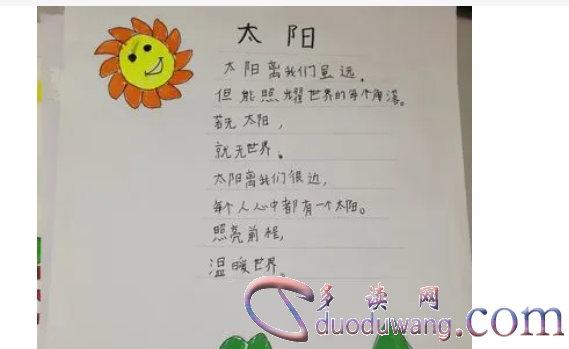 太阳
太阳离我们虽远，
但能照耀世界的每个角落。
若无太阳，
就无世界。
太阳离我们很近，
每个人心中都有一个太阳。
照亮前程，
温暖世界。
多读网
duoduwang.com